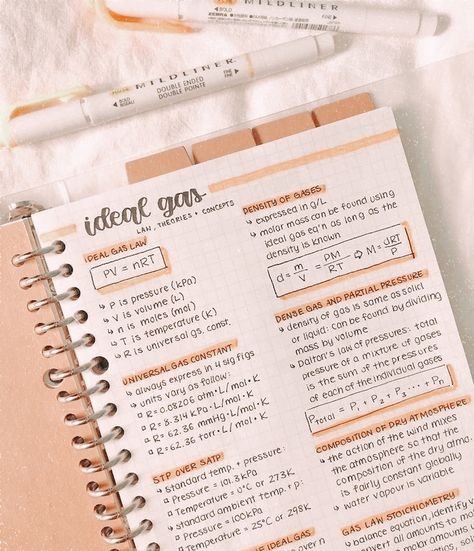 MILDLINER
BOLD
FINE
ZEBRA
MILDLINER
DOUBLE ENDED
DOUBLE POINTE
BOLD
FINE
ideal gas
LAW, THEORIES + CONCEPTS
IDEAL GAS LAW
PV = nRT
↳ P is pressure (kPa)
↳ V is volume (L)
↳ n is moles (mol)
↳ T is temperature (K)
↳ R is universal gs. const.
UNIVERSAL GAS CONSTANT
↳ always express in 4 sig figs
↳ units vary as follow:
R= 0.08206 atm·L/mol·K
R= 8.314 kPa·L/mol·K
R= 62.36 mmHg·L/mol·K
R= 62.36 torr·L/mol·K
STP OVER SATP
↳ standard temp. + pressure:
Pressure = 101.3 kPa
Temperature = 0°C or 273K
↳ standard ambient temp. + pressure:
Pressure = 100kPa
Temperature = 25°C or 298K
IDEAL GAS
DENSITY OF GASES
↳ expressed in g/L
↳ molar mass can be found using
ideal gas eq'n as long as the
density is known
d = m/V = PM/RT ⇨ M = dRT/P
DENSE GAS AND PARTIAL PRESSURE
↳ density of gas is same as solid
or liquid: can be found by dividing
mass by volume
↳ Dalton's law of pressures: total
pressure of a mixture of gases
is the sum of the pressures
of each of the individual gases
P total = P1 + P2 + P3 ... + Pn
COMPOSITION OF DRY ATMOSPHERE
↳ the action of the wind mixes
the atmosphere so that the
composition of the dry atmo
is fairly constant globally
↳ water vapour is variable
GAS LAW STOICHIOMETRY
↳ balance equation, identify
all amounts to mol